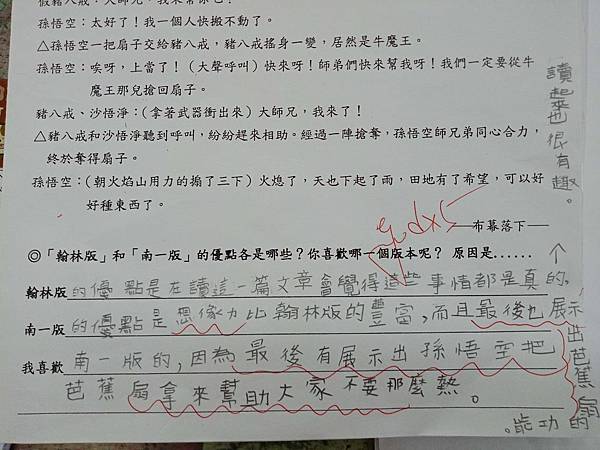 假豬八戒：大師兄，我來幫你吧！
孫悟空：太好了！我一個人快搬不動了。
△孫悟空一把扇子交給豬八戒，豬八戒搖身一變，居然是牛魔王。
孫悟空：唉呀，上當了！（大聲呼叫）快來呀！師弟們快來幫我呀！我們一定要從牛
魔王那兒搶回扇子。
豬八戒、沙悟淨：（拿著武器衝出來）大師兄，我來了！
△豬八戒和沙悟淨聽到呼叫，紛紛趕來相助。經過一陣搶奪，孫悟空師兄弟同心合力，
終於奪得扇子。
孫悟空：（朝火焰山用力的搧了三下）火熄了，天也下起了雨，田地有了希望，可以好
好種東西了。
——布幕落下—
◎「翰林版」和「南一版」的優點各是哪些？你喜歡哪一個版本呢？ 原因是......
翰林版的優點是在讀這一篇文章會覺得這些事情都是真的，
讀起來也很有趣。
南一版的優點是想像力比翰林版的豐富，而且最後也展示
出芭蕉扇的
功能。
我喜歡南一版的，因為最後有展示出孫悟空把
芭蕉扇拿來幫助大家不要那麼熱。